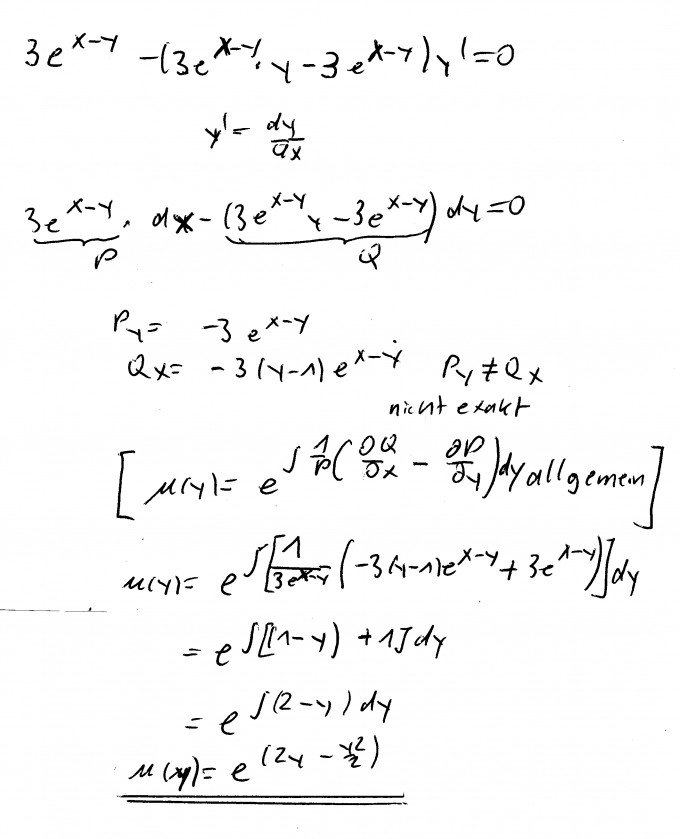 3e^{x-y} -(3e^{x-y}·y-3e^{x-y})y'=0
y'= dy/dx
3e^{x-y}· dx-(3e^{x-y}y-3e^{x-y})dy=0
P Q
P_y= -3e^{x-y}
Q_x= -3(y-1)e^{x-y} P_y≠Q_x
nicht exakt
[μ(y)= e^{∫ 1/P(∂Q/∂x - ∂P/∂y)dy} allgemein]
μ(y)= e^{∫[1/(3e^{x-y}) (-3(y-1)e^{x-y}+3e^{x-y})]dy}
= e^{∫[(1-y)+1]dy}
= e^{∫(2-y)dy}
μ(xy)= e^{(2y-y²/2)}